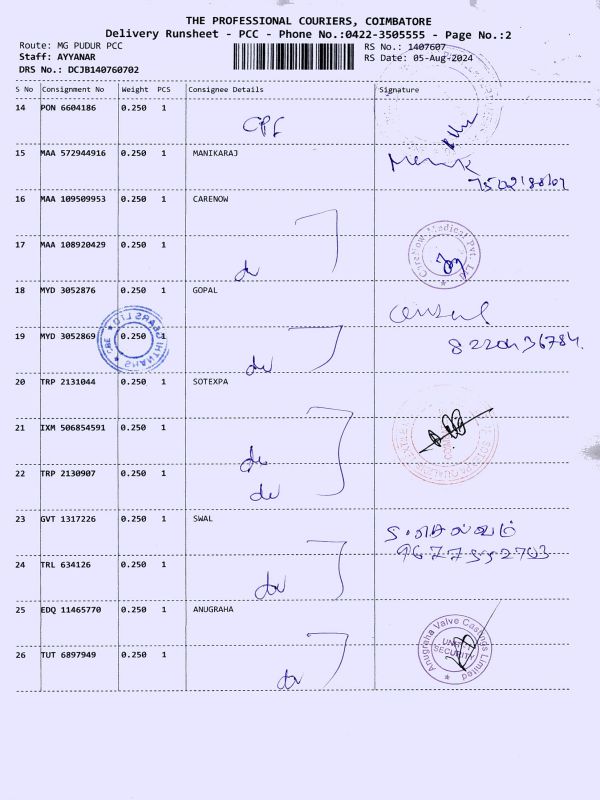 THE PROFESSIONAL COURIERS, COIMBATORE
Delivery Runsheet - PCC - Phone No.:0422-3505555 - Page No.:2
Route: MG PUDUR PCC RS No.: 1407607
Staff: AYYANAR RS Date: 05-Aug-2024
DRS No.: DCJB140760702
S No Consignment No Weight PCS Consignee Details Signature
14 PON 6604186 0.250 1
15 MAA 572944916 0.250 1 MANIKARAJ
16 MAA 109509953 0.250 1 CARENOW
17 MAA 108920429 0.250 1
do
CareNow Medical Pvt. Ltd
18 MYD 3052876 0.250 1 GOPAL
19 MYD 3052869 0.250 1
do
20 TRP 2131044 0.250 1 SOTEXPA
21 IXM 506854591 0.250 1
do
22 TRP 2130907 0.250 1
do
23 GVT 1317226 0.250 1 SWAL
24 TRL 634126 0.250 1
do
25 EDQ 11465770 0.250 1 ANUGRAHA
Anugraha Valve Castings Limited
SECURITY
26 TUT 6897949 0.250 1
do